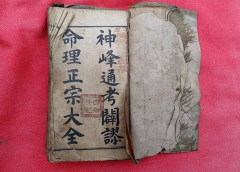 神峰通考闢謬
命理正宗大全